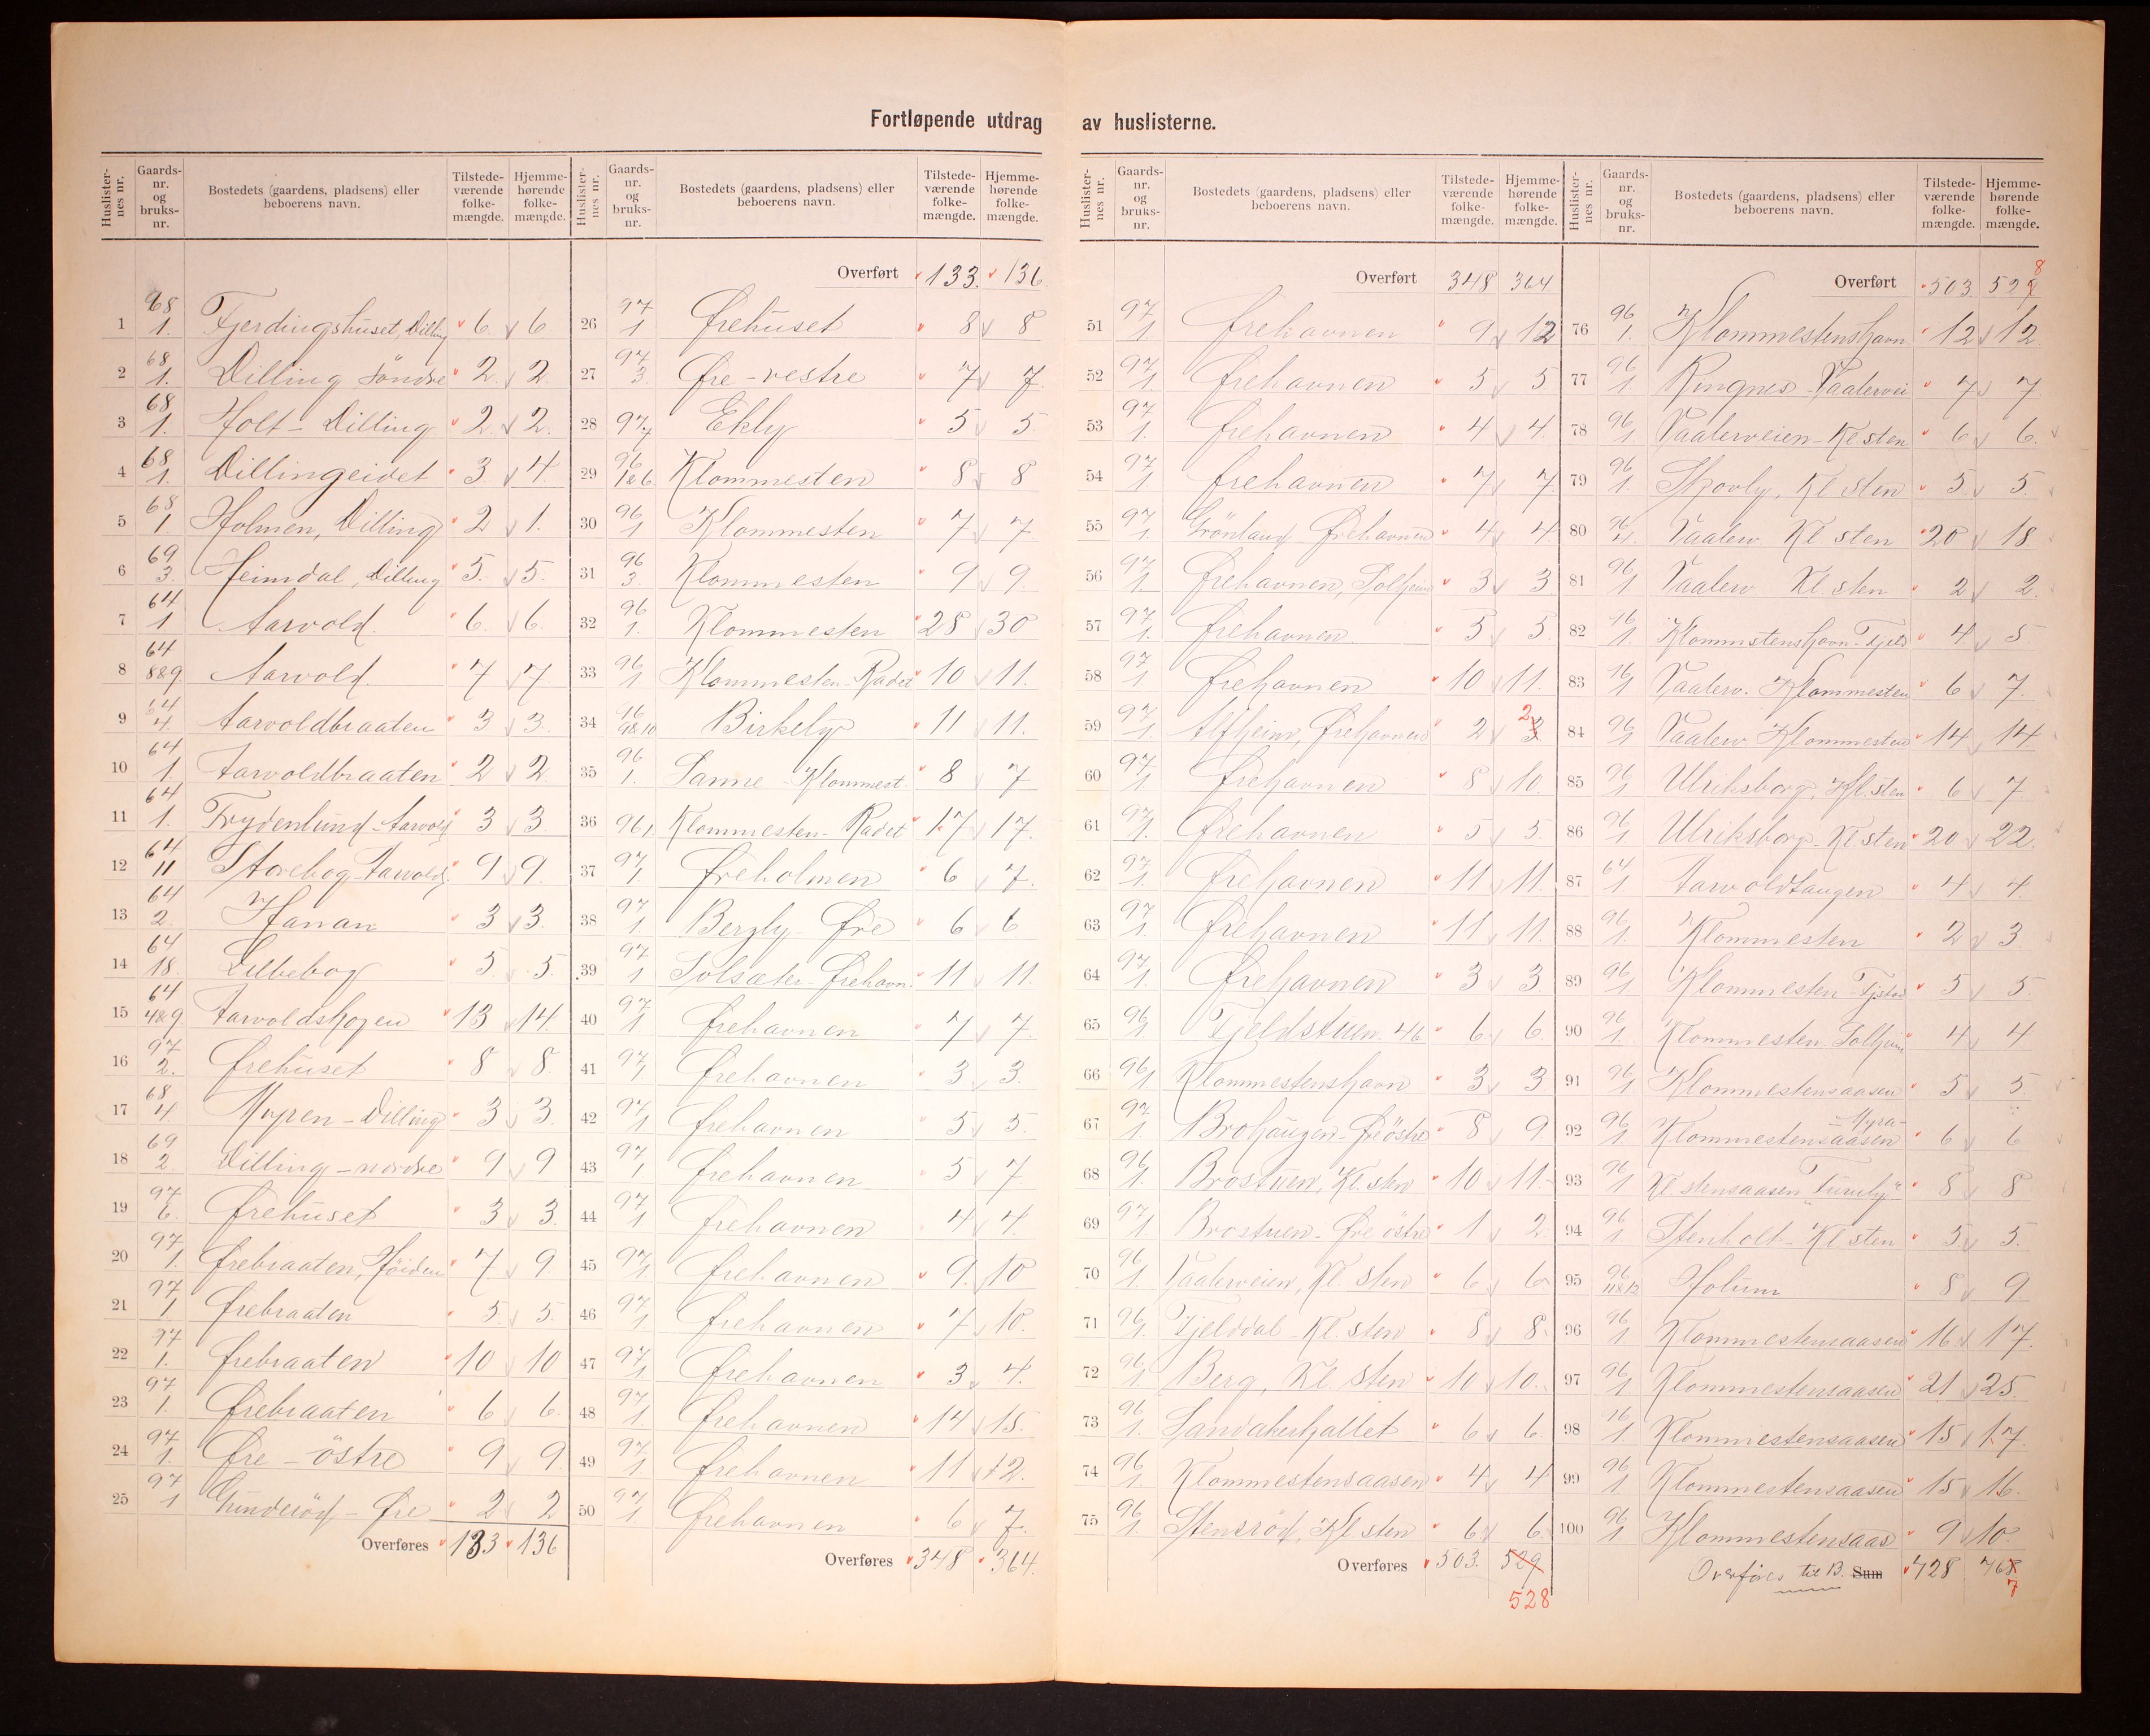 Fortløpende utdrag av huslisterne.
Huslisternes nr. Gaards-nr. og bruks-nr. Bostedets (gaardens, pladsens) eller beboerens navn. Tilstede-værende folke-mængde. Hjemme-hørende folke-mængde.
1 68 1. Fjerdingshuset, Dilling 6. 6.
2 68 1. Dilling söndre 2. 2.
3 68 1. Holt - Dilling 2. 2.
4 68 1. Dillingeidet 3 4.
5 68 1 Holmen, Dilling 2 1.
6 69 3. Heimdal, Dilling 5. 5.
7 64 1 Aarvold. 6. 6.
8 64 8&9 Aarvold. 7 7.
9 64 4 Aarvoldbraaten 3 3.
10 64 1. Aarvoldbraaten 2 2.
11 64 1. Frydenlund - Aarvold 3 3.
12 64 11 Storebog Aarvold 9 9.
13 64 2. Hanan 3 3.
14 64 18. Lillebog 5. 5.
15 64 4&9 Aarvoldskogen 13 14.
16 97 2. Ørehuset 8 8.
17 68 4. Myren - Dilling 3 3.
18 69 2 Dilling - nordre 9 9
19 97 6. Ørehuset 3 3.
20 97 1. Ørebraaten, Höiden 7 9.
21 97 1 Ørebraaten 5. 5.
22 97 1. Ørebraaten 10 10
23 97 1. Ørebraaten 6 6.
24 97 1. Øre - östre 9 9.
25 97 1 Gunderöd - Øre 2 2
Overføres 133 136
Huslisternes nr. Gaards-nr. og bruks-nr. Bostedets (gaardens, pladsens) eller beboerens navn. Tilstede-værende folke-mængde. Hjemme-hørende folke-mængde.
Overført 133. 136.
26 97 1 Ørehuset 8 8
27 97 3. Øre - vestre 7 7.
28 97 7 Ekly 5 5.
29 96 1&6 Klommesten 8 8
30 96 1 Klommesten 7 7.
31 96 3. Klommesten 9 9.
32 96 1. Klommesten 28 30
33 96 1 Klommesten - Radet 10 11.
34 96 9&10 Birkely 11 11.
35 96 1. Sanne - Klommest. 8 7
36 96 1 Klommesten - Radet 17 17.
37 97 1. Øreholmen 6 7.
38 97 1 Bergly - Øre 6 6
39 97 1 Solsæter - Ørehavn. 11 11.
40 97 1 Ørehavnen 7 7.
41 97 1 Ørehavnen 3 3.
42 97 1 Ørehavnen 5 5.
43 97 1 Ørehavnen 5 7
44 97 1 Ørehavnen 4 4.
45 97 1 Ørehavnen 9. 10
46 97 1 Ørehavnen 7 10.
47 97 1 Ørehavnen 3 4.
48 97 1 Ørehavnen 14 15.
49 97 1 Ørehavnen 11 12.
50 97 1 Ørehavnen 6 7.
Overføres 348 364.
Huslisternes nr. Gaards-nr. og bruks-nr. Bostedets (gaardens, pladsens) eller beboerens navn. Tilstede-værende folke-mængde. Hjemme-hørende folke-mængde.
Overført 348 364
51 97 1. Ørehavnen 9 12
52 97 1. Ørehavnen 5 5
53 97 1. Ørehavnen 4 4.
54 97 1 Ørehavnen 7 7.
55 97 1. Grönland Ørehavnen 4 4
56 97 1. Ørehavnen, Solheim 3 3
57 97 1. Ørehavnen 5 5.
58 97 1 Ørehavnen 10 11.
59 97 1. Alfheim, Ørehavnen 2 3. 2
60 97 1. Ørehavnen 8 10.
61 97 1. Ørehavnen 5 5.
62 97 1. Ørehavnen 11 11.
63 97 1. Ørehavnen 11 11.
64 97 1 Ørehavnen 3 3.
65 96 1 Fjeldstuen. 46 6. 6.
66 96 1 Klommestenshavn 3 3
67 97 1. Brohaugen - Øre östre 8 9.
68 96 1. Brostuen, Kl. sten 10 11.
69 97 1 Brostuen - Øre östre 1. 2.
70 96 1. Vaalerveien, Kl. sten 6 6
71 96 1. Fjelddal - Kl. sten 8 8.
72 96 1 Berg, Kl. sten 10 10.
73 96 1. Sandakerhallet 6 6.
74 96 1. Klommestensaasen 4 4
75 96 1. Stensröd, Kl sten 6 6.
Overføres 503. 529
528
Huslisternes nr. Gaards-nr. og bruks-nr. Bostedets (gaardens, pladsens) eller beboerens navn. Tilstede-værende folke-mængde. Hjemme-hørende folke-mængde.
8
Overført 503 529
76 96 1. Klommestenshavn 12 12.
77 96 1. Ringnes - Vaalervei 7 7.
78 96 1 Vaalerveien - Kl sten 6 6.
79 96 1. Skovly, Kl sten 5. 5.
80 96 Vaalerv. Kl sten 20 18
81 96 1 Vaalerv. Kl. sten 2 2.
82 96 1. Klommstenshavn - Fjeld 4. 5
83 96 1 Vaalerv. Klommesten 6 7.
84 96 1 Vaalerv. Klommesten 14 14.
85 96 1 Ulriksborg, Kl. sten 6 7.
86 96 1 Ulriksborg - Kl sten 20 22.
87 64 1 Aarvoldtangen 4 4.
88 96 1. Klommesten 2 3.
89 96 1 Klommesten 5 5.
90 96 1. Klommesten Solheim 4 4
91 96 1 Klommestensaasen 5 5.
92 96 1 Klommestensaasen - Myra - 6 6
93 96 1 Kl. stensaasen "Furuly" 8 8
94 96 1 Stenholt - Kl sten 5. 5.
95 96 11&12 Holum 8 9
96 96 1 Klommestensaasen 16 17.
97 96 1 Klommestensaasen 21 25.
98 96 1 Klommestensaasen 15 17.
99 96 1 Klommestensaasen 15 16.
100 96 1 Klommestensaas 9 10.
Overføres til B. Sum 728 768
7